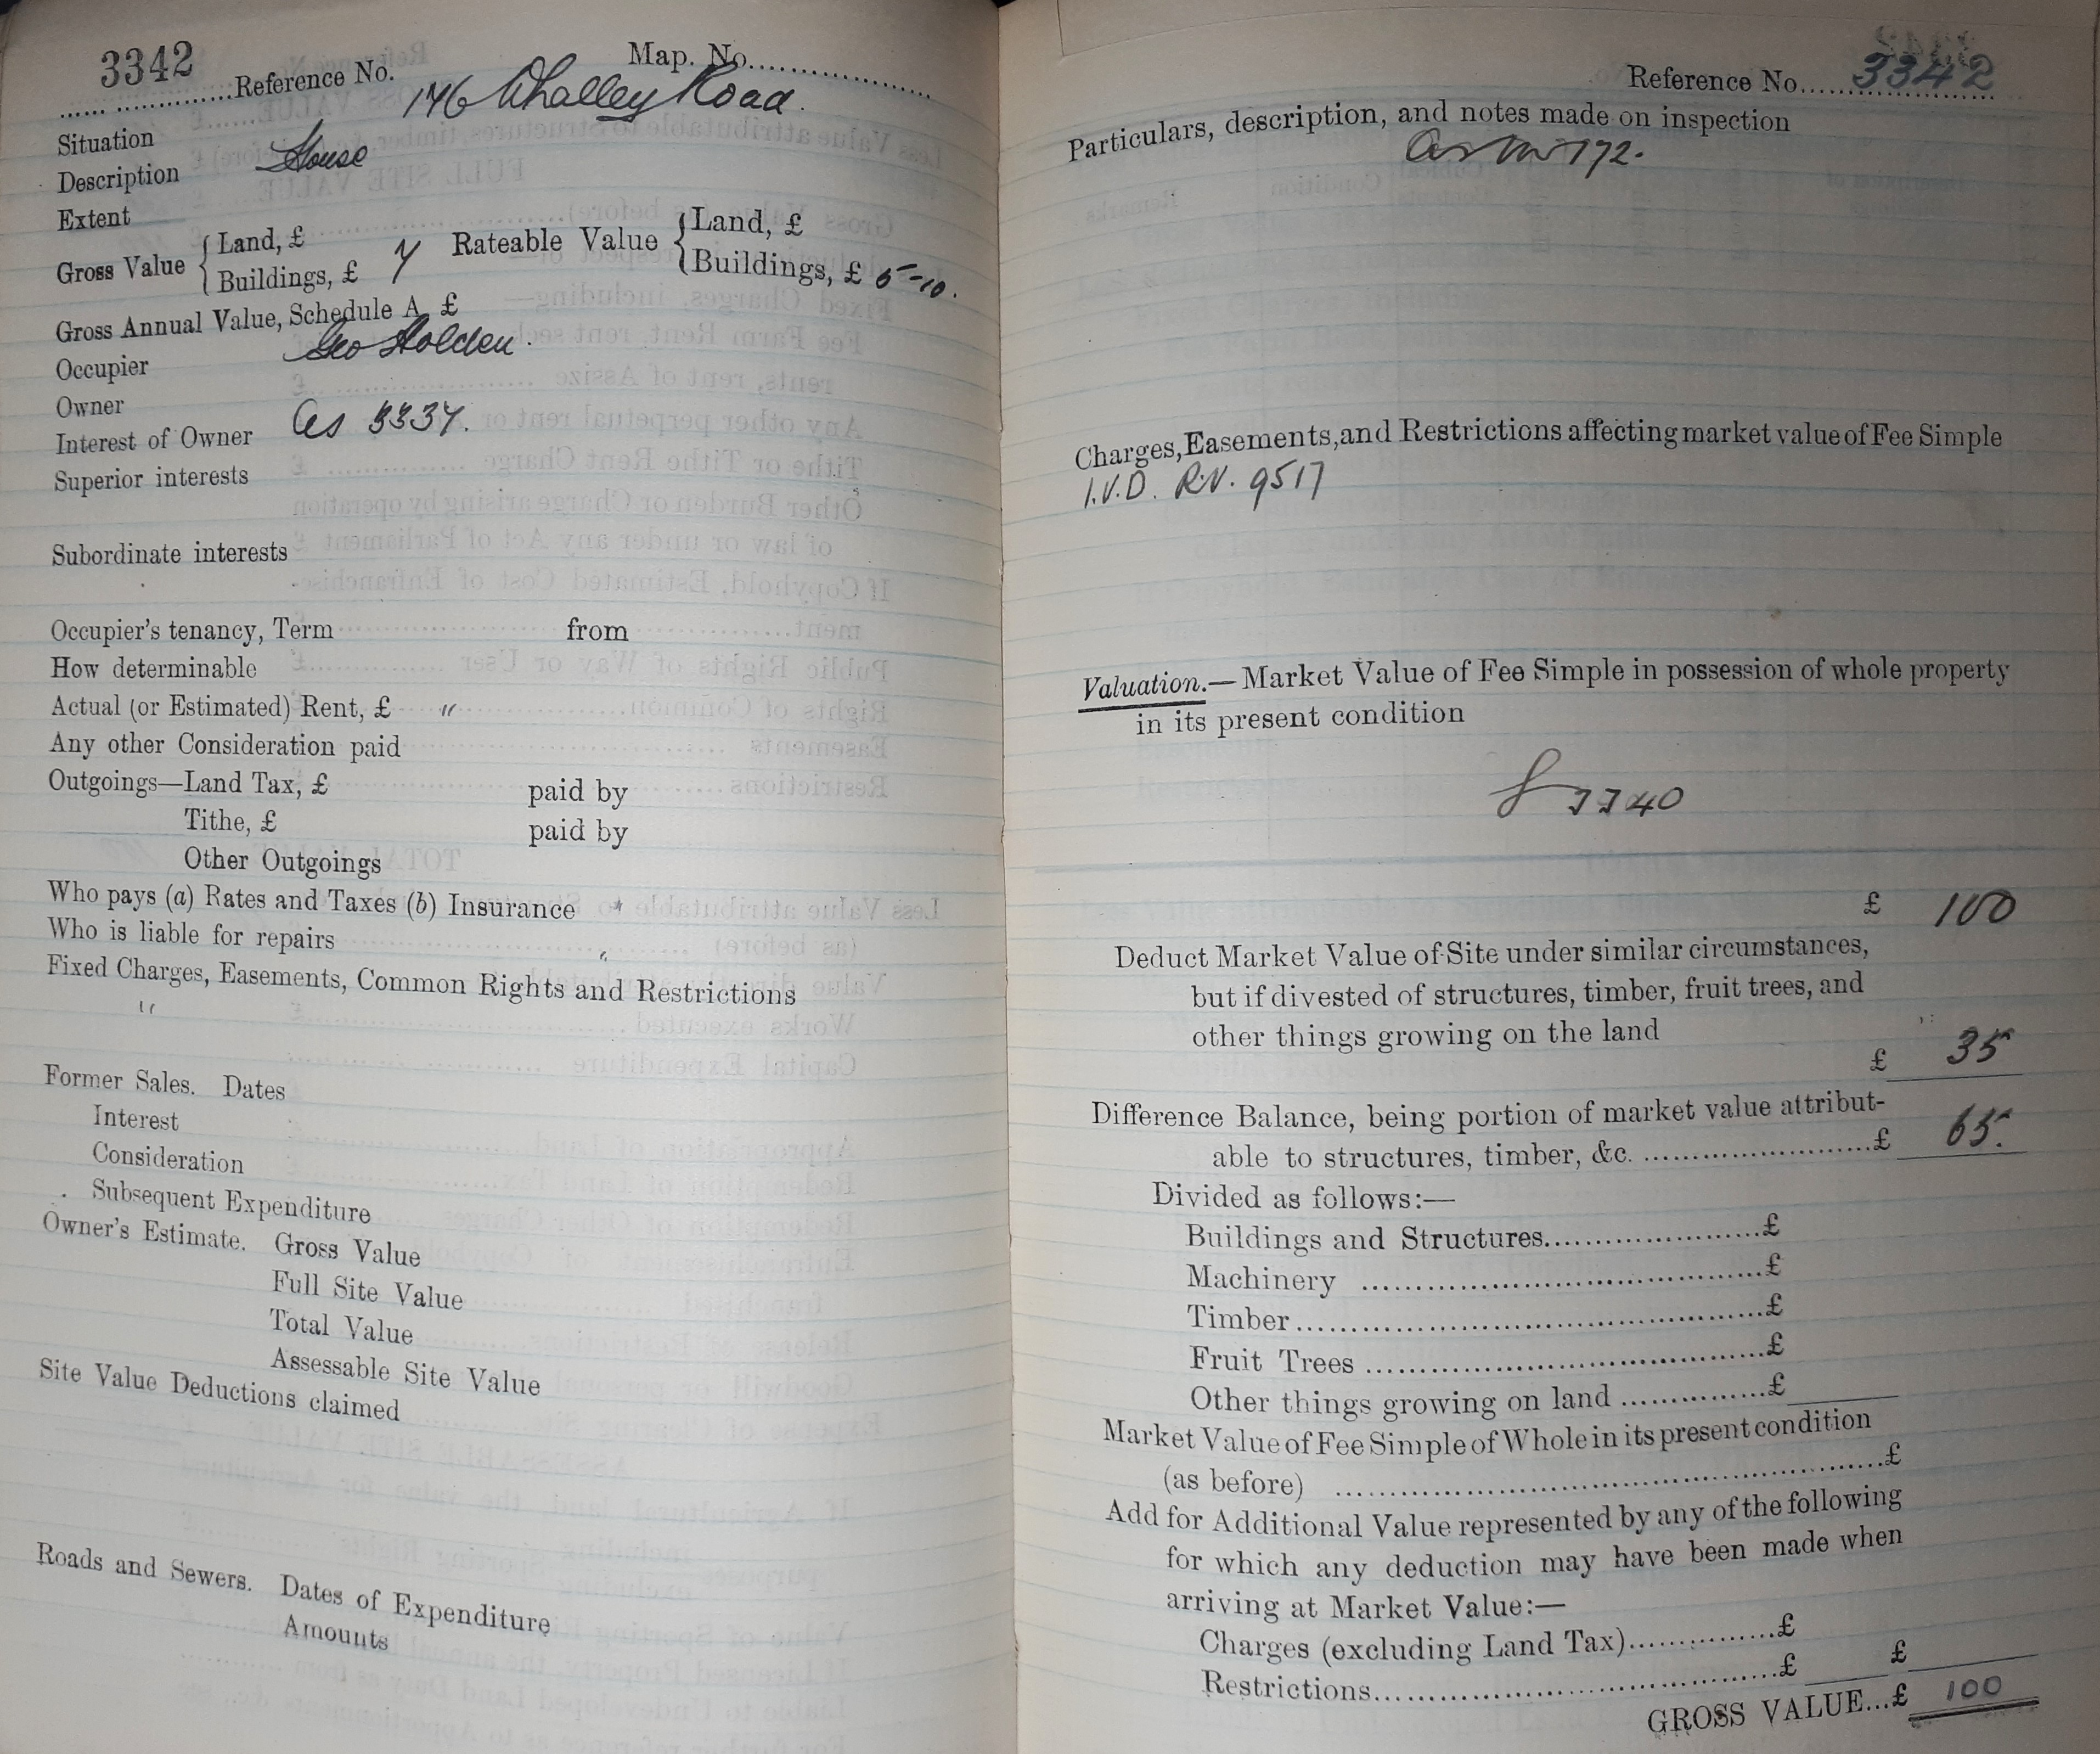 3342
Reference No. Map. No.
Situation 176 Whalley Road.
Description House
Extent
Gross Value { Land, £ Rateable Value { Land, £
Buildings, £ 7 Buildings, £ 5-10.
Gross Annual Value, Schedule A £
Occupier Geo Holden.
Owner
Interest of Owner As 3337.
Superior interests
Subordinate interests
Occupier's tenancy, Term from
How determinable
Actual (or Estimated) Rent, £ "
Any other Consideration paid
Outgoings—Land Tax, £ paid by
Tithe, £ paid by
Other Outgoings
Who pays (a) Rates and Taxes (b) Insurance "
Who is liable for repairs "
Fixed Charges, Easements, Common Rights and Restrictions
"
Former Sales. Dates
Interest
Consideration
Subsequent Expenditure
Owner's Estimate. Gross Value
Full Site Value
Total Value
Assessable Site Value
Site Value Deductions claimed
Roads and Sewers. Dates of Expenditure
Amounts
Reference No. 3342
Particulars, description, and notes made on inspection
As No 172.
Charges, Easements, and Restrictions affecting market value of Fee Simple
I.V.D. R.V. 9517
Valuation.—Market Value of Fee Simple in possession of whole property
in its present condition
£ 100
Deduct Market Value of Site under similar circumstances,
but if divested of structures, timber, fruit trees, and
other things growing on the land
£ 35
Difference Balance, being portion of market value attribut-
able to structures, timber, &c. £ 65.
Divided as follows:—
Buildings and Structures £
Machinery £
Timber £
Fruit Trees £
Other things growing on land £
Market Value of Fee Simple of Whole in its present condition
(as before) £
Add for Additional Value represented by any of the following
for which any deduction may have been made when
arriving at Market Value:—
Charges (excluding Land Tax) £
Restrictions £ £
GROSS VALUE...£ 100